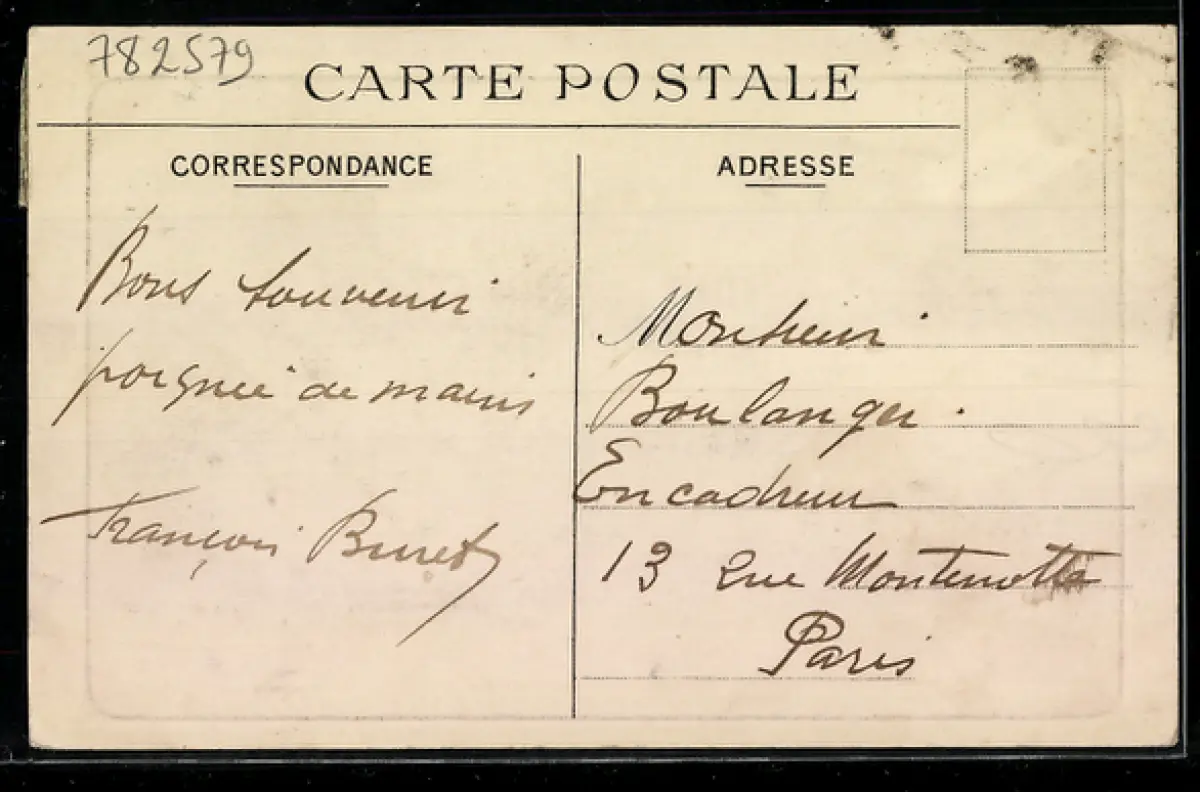 782579
CARTE POSTALE
CORRESPONDANCE
ADRESSE
Bons souvenir
poignée de mains
François Buret
Monsieur
Boulanger.
Encadreur
13 rue Montenotte
Paris